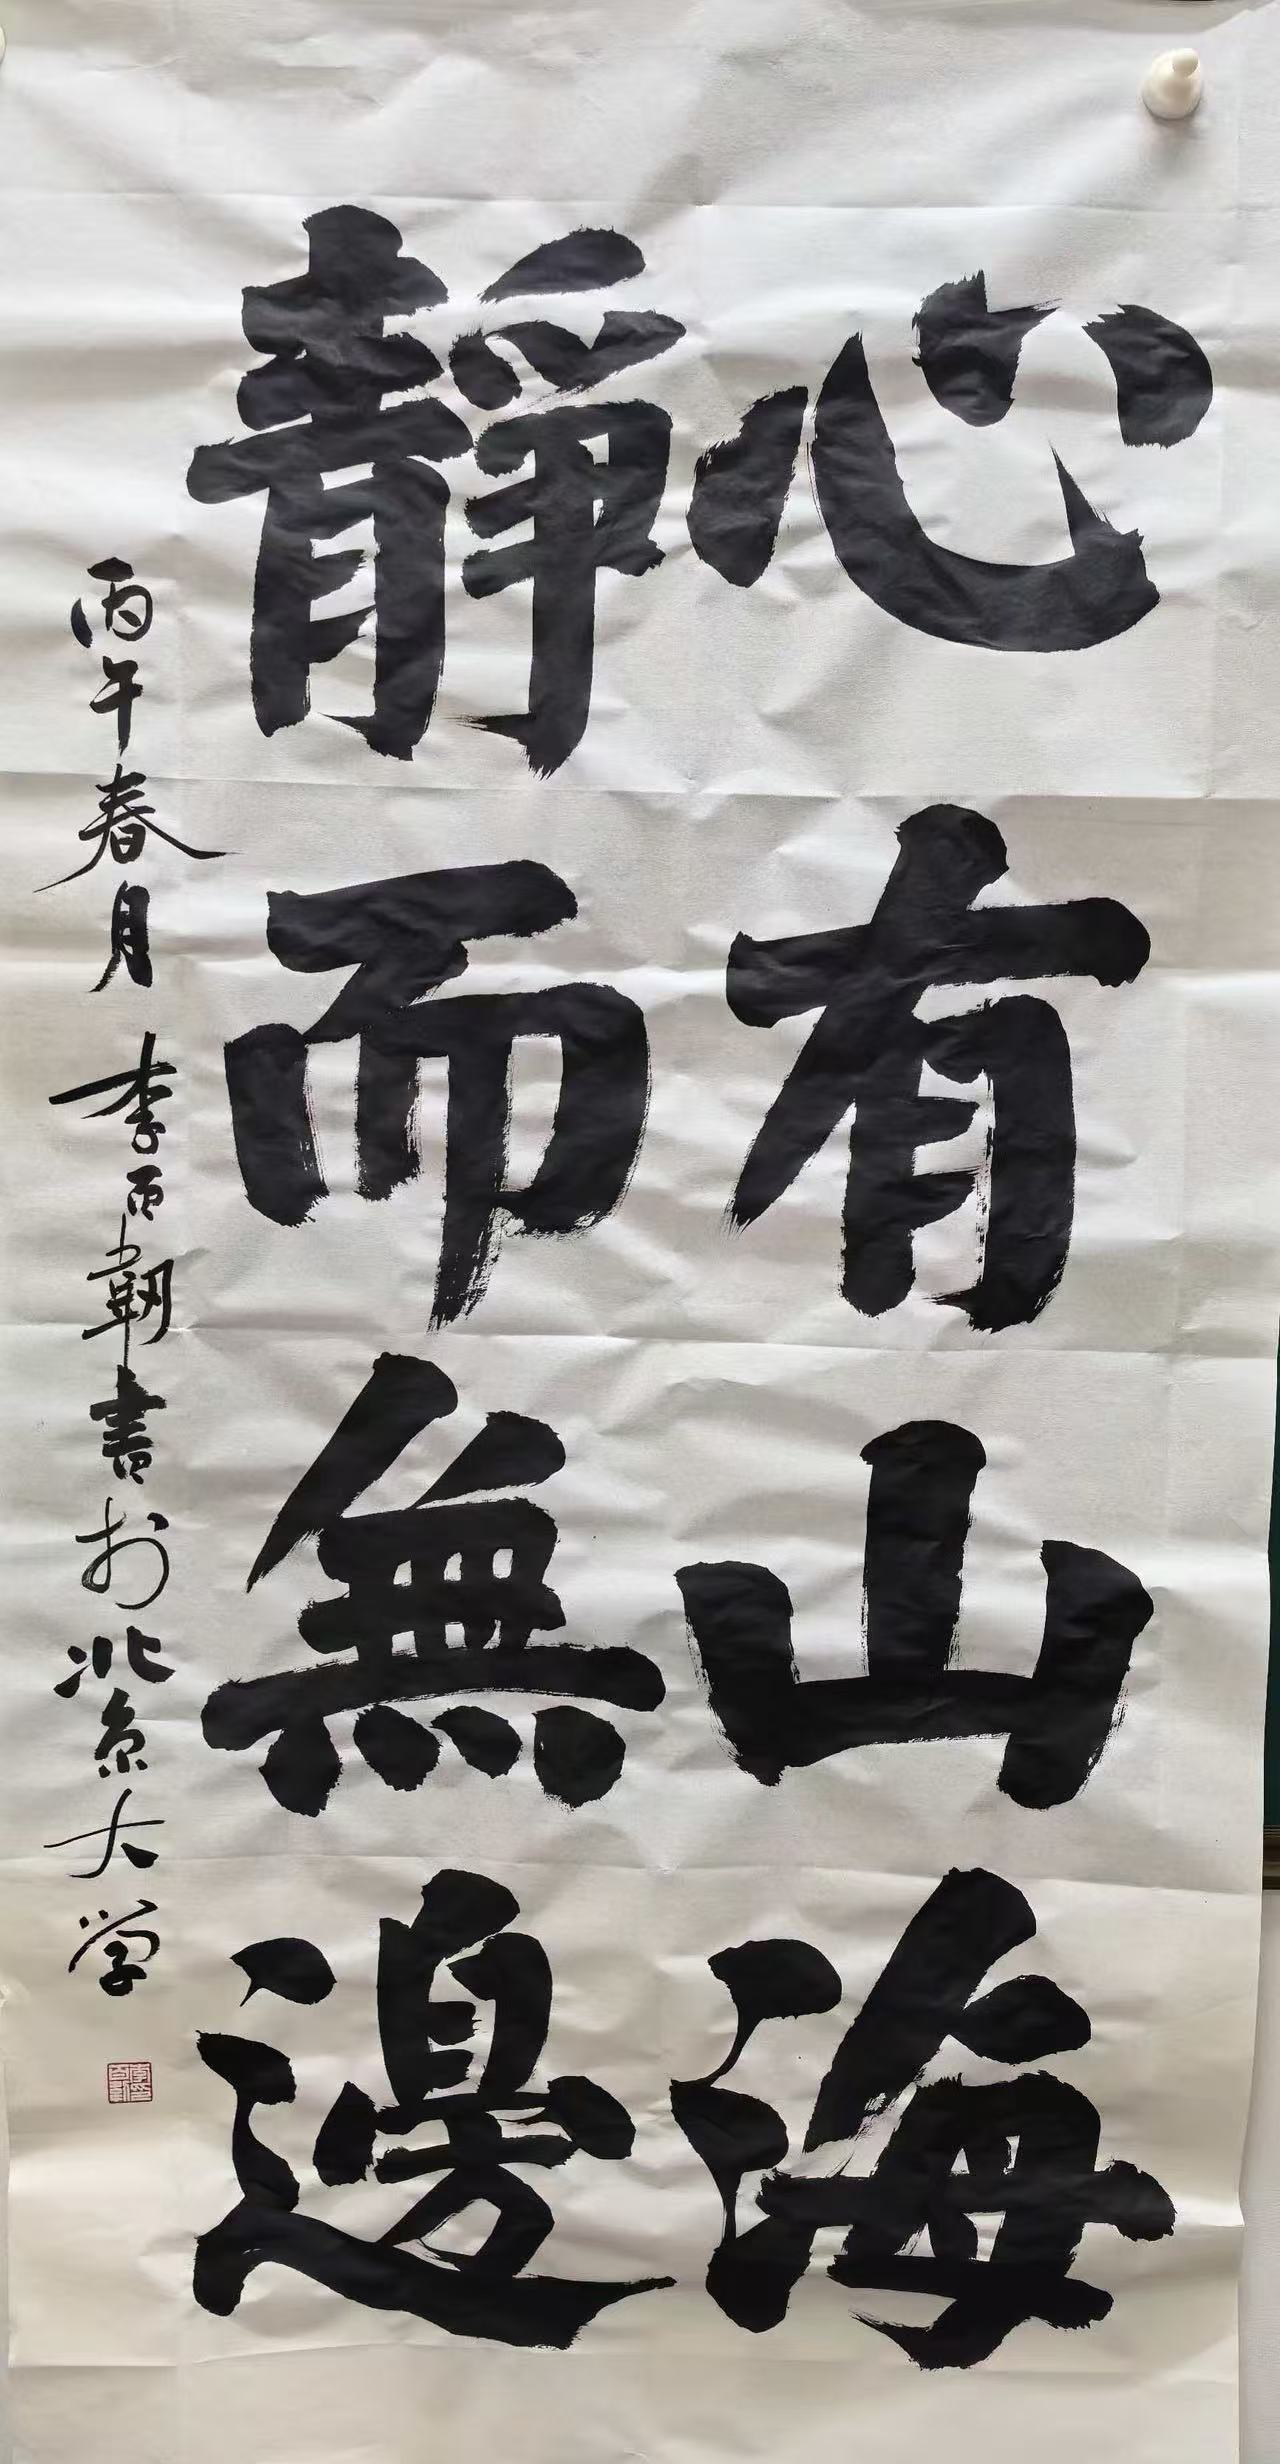 心有山海
靜而無邊
丙午春月 李百韌書於北京大学